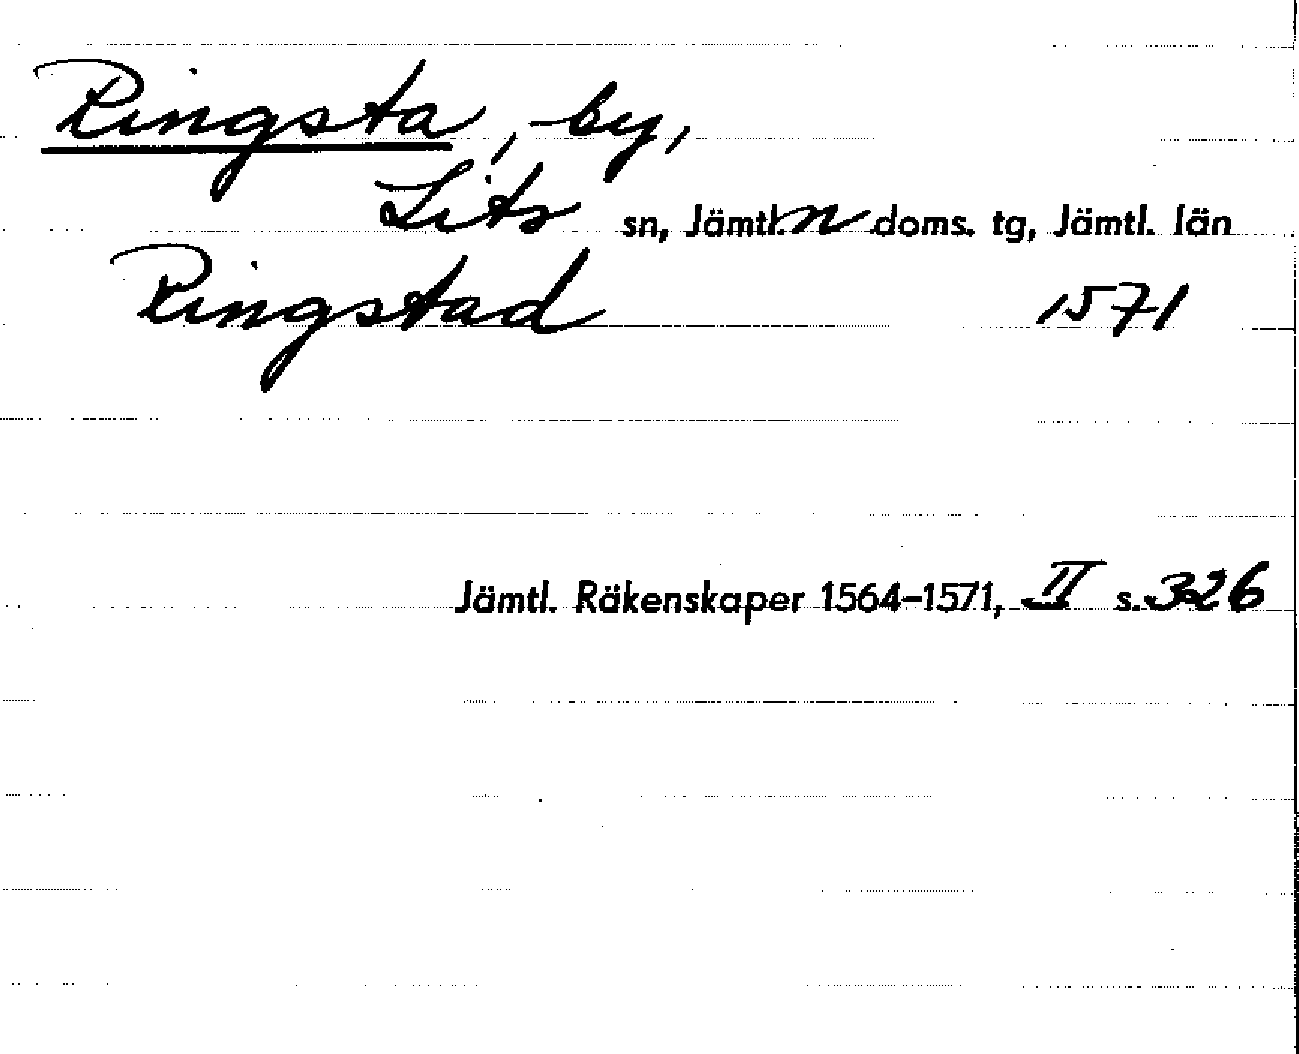 Ringsta, by,
Lits sn, Jämtl. n doms. tg, Jämtl. län
Ringstad 1571
Jämtl. Räkenskaper 1564-1571, II s. 326